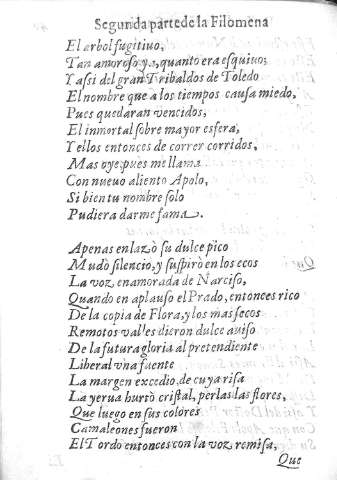 Segunda parte de la Filomena
El arbol fugitiuo,
Tan amoroso ya, quanto era esquiuo;
Y assi del gran Tribaldos de Toledo
El nombre que a los tiempos causa miedo,
Pues quedaran vencidos,
El inmortal sobre mayor esfera,
Y ellos entonces de correr corridos,
Mas oye, pues me llama
Con nueuo aliento Apolo,
Si bien tu nombre solo
Pudiera darme fama.
Apenas enlazò su dulce pico
Mudò silencio, y suspirò en los ecos
La voz enamorada de Narciso,
Quando en aplauso el Prado, entonces rico
De la copia de Flora, y los mas secos
Remotos valles dieron dulce auiso
De la futura gloria al pretendiente
Liberal vna fuente
La margen excedio de cuya risa
La yerua hurtò cristal, perlas las flores,
Que luego en sus colores
Camaleones fueron
El Tordo entonces con la voz remisa,
Que